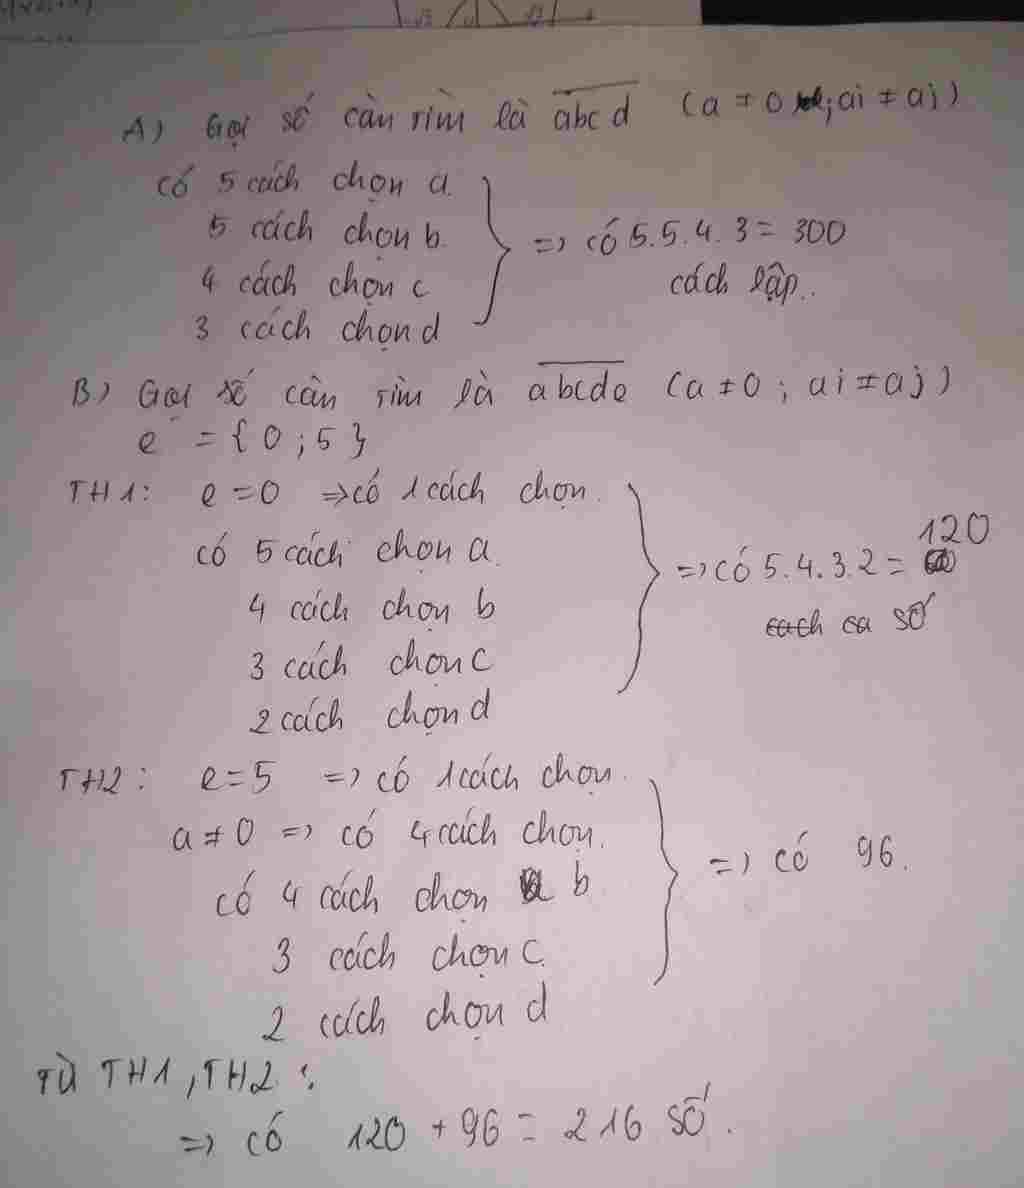 A) Gọi số cần tìm là abcd (a ≠ 0; ai ≠ aj)
có 5 cách chọn a.
5 cách chọn b.
4 cách chọn c
3 cách chọn d
=> có 5.5.4.3 = 300
cách lập..
B) Gọi số cần tìm là abcde (a ≠ 0; ai ≠ aj)
e = {0; 5}
TH1: e = 0 => có 1 cách chọn.
có 5 cách chọn a.
4 cách chọn b
3 cách chọn c
2 cách chọn d
=> có 5.4.3.2 = 120
số
TH2: e = 5 => có 1 cách chọn.
a ≠ 0 => có 4 cách chọn.
có 4 cách chọn b
3 cách chọn c.
2 cách chọn d
=> có 96.
Từ TH1, TH2:
=> có 120 + 96 = 216 số.